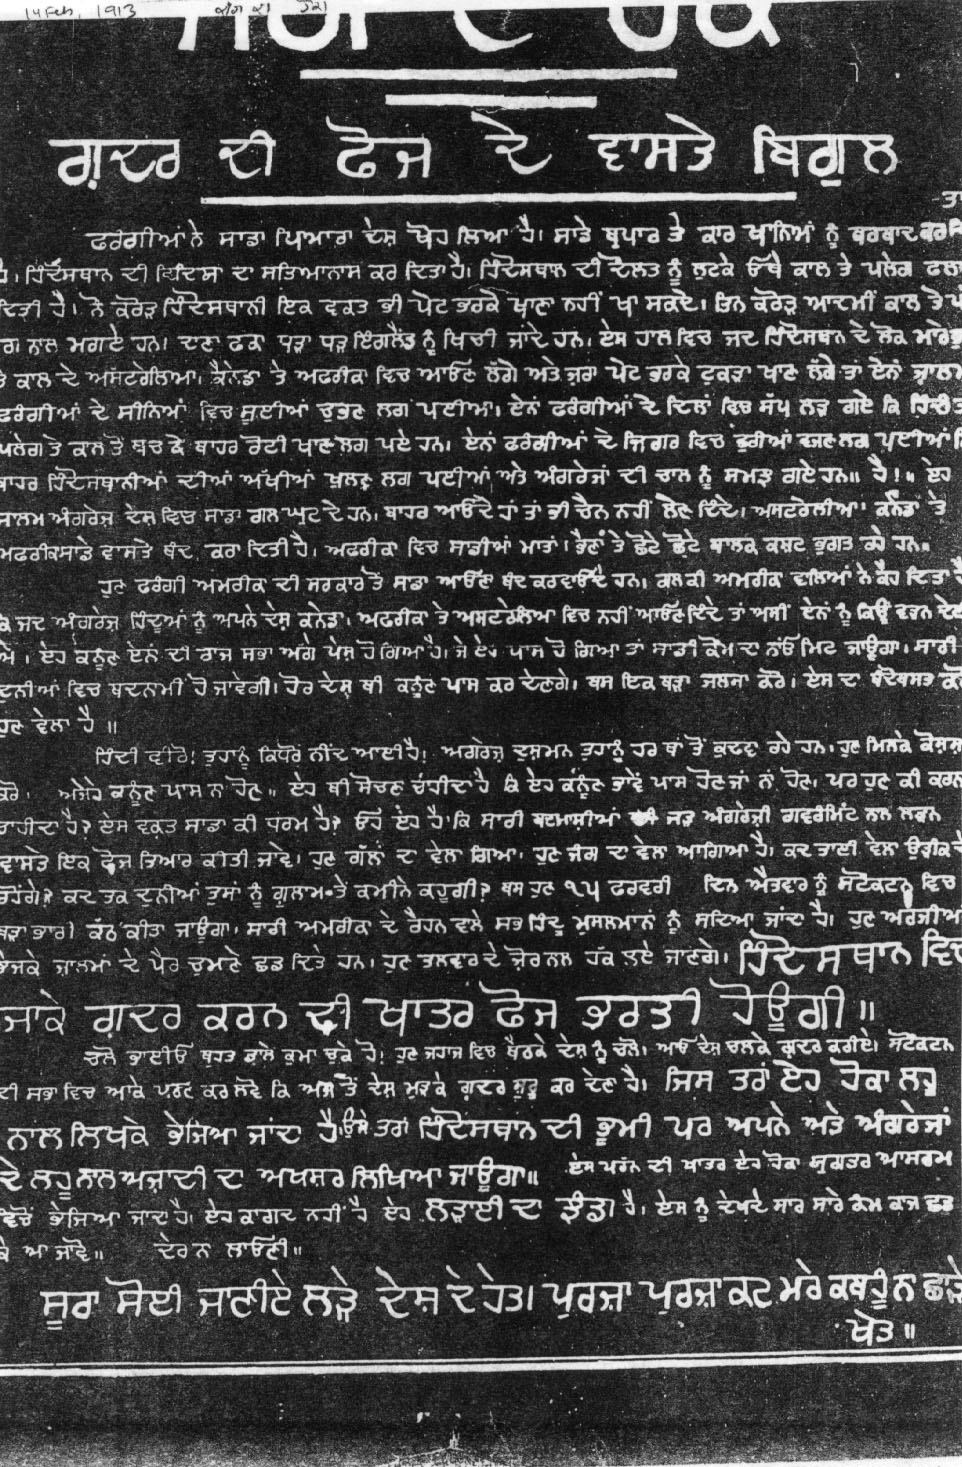 14 Feb, 1913 ਜੰਗ ਦਾ ਹੋਕਾ
ਜੰਗ ਦਾ ਹੋਕਾ
ਗ਼ਦਰ ਦੀ ਫੌਜ ਦੇ ਵਾਸਤੇ ਬਿਗੁਲ
ਫਰੰਗੀਆਂ ਨੇ ਸਾਡਾ ਪਿਆਰਾ ਦੇਸ਼ ਖੋਹ ਲਿਆ ਹੈ। ਸਾਡੇ ਬੁਪਾਰ ਤੇ ਕਾਰ ਖਾਨਿਆਂ ਨੂੰ ਬਰਬਾਦ ਕਰ
ਹੈ। ਹਿੰਦੋਸਥਾਨ ਦੀ ਵਿਦਿਆ ਦਾ ਸਤਿਆਨਾਸ ਕਰ ਦਿਤਾ ਹੈ। ਹਿੰਦੋਸਥਾਨ ਦੀ ਦੌਲਤ ਨੂੰ ਲੁਟਕੇ ਓਥੇ ਕਾਲ ਤੇ ਪਲੇਗ ਫਲਾ
ਦਿਤੀ ਹੈ। ਨੌ ਕਰੋੜ ਹਿੰਦੋਸਥਾਨੀ ਇਕ ਵਕਤ ਭੀ ਪੇਟ ਭਰਕੇ ਖਾਣਾ ਨਹੀਂ ਖਾ ਸਕਦੇ। ਤਿਨ ਕਰੋੜ ਆਦਮੀ ਕਾਲ ਤੇ
ਗ ਨਾਲ ਮਰਗਏ ਹਨ। ਦਾਣਾ ਫਕਾ ਧੜਾ ਧੜ ਇੰਗਲੈਂਡ ਨੂੰ ਖਿਚੀ ਜਾਂਦੇ ਹਨ। ਏਸ ਹਾਲ ਵਿਚ ਜਦ ਹਿੰਦੋਸਥਾਨ ਦੇ ਲੋਕ ਮਾਰੇ
ਤੇ ਕਾਲ ਦੇ ਅਸਟਰੇਲੀਆ। ਕੈਨੇਡਾ ਤੇ ਅਫਰੀਕਾ ਵਿਚ ਆਓਣ ਲੱਗੇ ਅਤੇ ਜ਼ਰਾ ਪੇਟ ਭਰਕੇ ਟੁਕੜਾ ਖਾਣ ਲੱਗੇ ਤਾਂ ਏਨਾਂ ਜ਼ਾਲਮ
ਫਰੰਗੀਆਂ ਦੇ ਸੀਨਿਆਂ ਵਿਚ ਸੂਈਆਂ ਚੁਭਣ ਲਗ ਪਈਆਂ। ਏਨਾਂ ਫਰੰਗੀਆਂ ਦੇ ਦਿਲਾਂ ਵਿਚ ਸੱਪ ਲੜ ਗਏ ਕਿ ਹਿੰਦੀ
ਪਲੇਗ ਤੇ ਕਾਲ ਤੋਂ ਬਚ ਕੇ ਬਾਹਰ ਰੋਟੀ ਖਾਣ ਲਗ ਪਏ ਹਨ। ਏਨਾਂ ਫਰੰਗੀਆਂ ਦੇ ਜਿਗਰ ਵਿਚ ਛੁਰੀਆਂ ਵਜਣ ਲਗ ਪਈਆਂ
ਬਾਹਰ ਹਿੰਦੋਸਥਾਨੀਆਂ ਦੀਆਂ ਅੱਖੀਆਂ ਖੁਲਣ ਲਗ ਪਈਆਂ ਅਤੇ ਅੰਗਰੇਜਾਂ ਦੀ ਚਾਲ ਨੂੰ ਸਮਝ ਗਏ ਹਨ॥ ਹੈ!॥ ਏਹ
ਜਾਲਮ ਅੰਗਰੇਜ ਦੇਸ਼ ਵਿਚ ਸਾਡਾ ਗਲ ਘੁਟ ਦੇ ਹਨ। ਬਾਹਰ ਆਓਂਦੇ ਹਾਂ ਤਾਂ ਭੀ ਚੈਨ ਨਹੀਂ ਲੈਣ ਦਿੰਦੇ। ਅਸਟਰੇਲੀਆ। ਕਨੇਡਾ ਤੇ
ਅਫਰੀਕਾ ਸਾਡੇ ਵਾਸਤੇ ਬੰਦ ਕਰਾ ਦਿਤੀ ਹੈ। ਅਫਰੀਕਾ ਵਿਚ ਸਾਡੀਆਂ ਮਾਤਾਂ। ਭੈਣਾਂ ਤੇ ਛੋਟੇ ਛੋਟੇ ਬਾਲਕ ਕਸ਼ਟ ਭੁਗਤ ਰਹੇ ਹਨ॥
ਹੁਣ ਫਰੰਗੀ ਅਮਰੀਕਾ ਦੀ ਸਰਕਾਰ ਤੋਂ ਸਾਡਾ ਆਓਣ ਬੰਦ ਕਰਵਾਓਂਦੇ ਹਨ। ਕਲ ਕੀ ਅਮਰੀਕਾ ਵਾਲਿਆਂ ਨੇ ਕੈਹ ਦਿਤਾ ਹੈ
ਕਿ ਜਦ ਅੰਗਰੇਜ਼ ਹਿੰਦੂਆਂ ਨੂੰ ਅਪਨੇ ਦੇਸ਼ ਕਨੇਡਾ। ਅਫਰੀਕਾ ਤੇ ਅਸਟਰੇਲੀਆ ਵਿਚ ਨਹੀਂ ਆਓਣ ਦਿੰਦੇ ਤਾਂ ਅਸੀਂ ਏਨਾਂ ਨੂੰ ਕਿਓਂ ਵੜਨ
ਏਹ ਕਨੂੰਣ ਏਨਾਂ ਦੀ ਰਾਜ ਸਭਾ ਅੱਗੇ ਪੇਸ਼ ਹੋ ਗਿਆ ਹੈ। ਜੇ ਏਹ ਪਾਸ ਹੋ ਗਿਆ ਤਾਂ ਸਾਡੀ ਕੌਮ ਦਾ ਨਾਂਓਂ ਮਿਟ ਜਾਊਗਾ। ਸਾਰੀ
ਦੁਨੀਆਂ ਵਿਚ ਬਦਨਾਮੀ ਹੋ ਜਾਵੇਗੀ। ਹੋਰ ਦੇਸ਼ ਭੀ ਕਨੂੰਣ ਪਾਸ ਕਰ ਦੇਣਗੇ। ਬਸ ਇਕ ਬੜਾ ਜਲਸਾ ਕਰੋ। ਏਸ ਦਾ ਬੰਦੋਬਸਤ ਕਰੋ
ਹੁਣ ਵੇਲਾ ਹੈ॥
ਹਿੰਦੀ ਵੀਰੋ! ਤੁਹਾਨੂੰ ਕਿਧਰੋਂ ਨੀਂਦ ਆਈ ਹੈ! ਅਗਰੇਜ਼ ਦੁਸ਼ਮਨ ਤੁਹਾਨੂੰ ਹਰ ਥਾਂ ਤੋਂ ਕੁਢਣ ਰਹੇ ਹਨ। ਹੁਣ ਮਿਲਕੇ ਕੋਸ਼ਸ਼
ਕਰੋ। ਅਜੇਹੇ ਕਨੂੰਣ ਪਾਸ ਨਾ ਹੋਣ॥ ਏਹ ਭੀ ਸੋਚਣਾ ਚਾਹੀਦਾ ਹੈ ਕਿ ਏਹ ਕਨੂੰਣ ਭਾਵੇਂ ਪਾਸ ਹੋਣ ਜਾਂ ਨਾਂ ਹੋਣ। ਪਰ ਹੁਣ ਕੀ ਕਰਨਾ
ਚਾਹੀਦਾ ਹੈ? ਏਸ ਵਕਤ ਸਾਡਾ ਕੀ ਧਰਮ ਹੈ? ਓਹ ਏਹ ਹੈ ਕਿ ਸਾਰੀ ਬਦਮਾਸ਼ੀਆਂ ਦੀ ਜੜ ਅੰਗਰੇਜ਼ੀ ਗਵਰਮਿੰਟ ਨਾਲ ਲੜਨ
ਵਾਸਤੇ ਇਕ ਫੌਜ ਤਿਆਰ ਕੀਤੀ ਜਾਵੇ। ਹੁਣ ਗੱਲਾਂ ਦਾ ਵੇਲਾ ਗਿਆ। ਹੁਣ ਜੰਗ ਦਾ ਵੇਲਾ ਆਗਿਆ ਹੈ। ਕਦ ਤਾਈਂ ਵੇਲਾ ਉਡੀਕਦੇ
ਰਹੋਂਗੇ? ਕਦ ਤਕ ਦੁਨੀਆਂ ਤੁਸਾਂ ਨੂੰ ਗੁਲਾਮ ਤੇ ਕਮੀਨੇ ਕਹੂਗੀ? ਬਸ ਹੁਣ ੧੫ ਫਰਵਰੀ ਦਿਨ ਐਤਵਾਰ ਨੂੰ ਸਟੋਕਟਨ ਵਿਚ
ਬੜਾ ਭਾਰੀ ਕੱਠ ਕੀਤਾ ਜਾਊਗਾ। ਸਾਰੀ ਅਮਰੀਕਾ ਦੇ ਰੈਹਨ ਵਾਲੇ ਸਭ ਹਿੰਦੂ ਮੁਸਲਮਾਨਾਂ ਨੂੰ ਸਦਿਆ ਜਾਂਦਾ ਹੈ। ਹੁਣ ਅਰਜੀਆਂ
ਭੇਜਕੇ ਜ਼ਾਲਮਾਂ ਦੇ ਪੈਰ ਚੁਮਣੇ ਛਡ ਦਿਤੇ ਹਨ। ਹੁਣ ਤਲਵਾਰ ਦੇ ਜ਼ੋਰ ਨਾਲ ਹੱਕ ਲਏ ਜਾਣਗੇ। ਹਿੰਦੋਸਥਾਨ ਵਿਚ
ਜਾਕੇ ਗ਼ਦਰ ਕਰਨ ਦੀ ਖਾਤਰ ਫੌਜ ਭਰਤੀ ਹੋਊਗੀ॥
ਚਲੋ ਭਾਈਓ ਬਹੁਤ ਡਾਲੇ ਕੁਮਾ ਚੁਕੇ ਹੋ! ਹੁਣ ਜਹਾਜ ਵਿਚ ਬੈਠਕੇ ਦੇਸ਼ ਨੂੰ ਚਲੋ। ਆਓ ਦੇਸ਼ ਚਲਕੇ ਗ਼ਦਰ ਕਰੀਏ। ਸਟੋਕਟਨ
ਦੀ ਸਭਾ ਵਿਚ ਆਕੇ ਪਰਣ ਕਰ ਲਵੋ ਕਿ ਅਸਾਂ ਤੋਂ ਦੇਸ਼ ਮੁੜਕੇ ਗ਼ਦਰ ਸ਼ੁਰੂ ਕਰ ਦੇਣਾ ਹੈ। ਜਿਸ ਤਰਾਂ ਏਹ ਹੋਕਾ ਲਹੂ
ਨਾਲ ਲਿਖਕੇ ਭੇਜਿਆ ਜਾਂਦਾ ਹੈ ਉਸੇ ਤਰਾਂ ਹਿੰਦੋਸਥਾਨ ਦੀ ਭੂਮੀ ਪਰ ਅਪਨੇ ਅਤੇ ਅੰਗਰੇਜਾਂ
ਦੇ ਲਹੂ ਨਾਲ ਅਜ਼ਾਦੀ ਦਾ ਅਖਸ਼ਰ ਲਿਖਿਆ ਜਾਊਗਾ॥ ਏਸ ਪਰਣ ਦੀ ਖਾਤਰ ਏਹ ਹੋਕਾ ਯੁਗਾਂਤਰ ਆਸ਼ਰਮ
ਵਿੱਚੋਂ ਭੇਜਿਆ ਜਾਦਾ ਹੈ। ਏਹ ਕਾਗਦ ਨਹੀਂ ਹੈ ਏਹ ਲੜਾਈ ਦਾ ਝੰਡਾ ਹੈ। ਏਸ ਨੂੰ ਦੇਖਦੇ ਸਾਰ ਸਾਰੇ ਕੰਮ ਕਾਜ ਛਡ
ਕੇ ਆ ਜਾਵੋ॥ ਦੇਰ ਨਾ ਲਾਓਣੀ॥
ਸੂਰਾ ਸੋਈ ਜਾਣੀਏ ਲੜੇ ਦੇਸ਼ ਦੇ ਹੇਤ। ਪੁਰਜ਼ਾ ਪੁਰਜ਼ਾ ਕਟ ਮਰੇ ਕਬਹੂੰ ਨ ਛਾਡੇ
ਖੇਤ॥